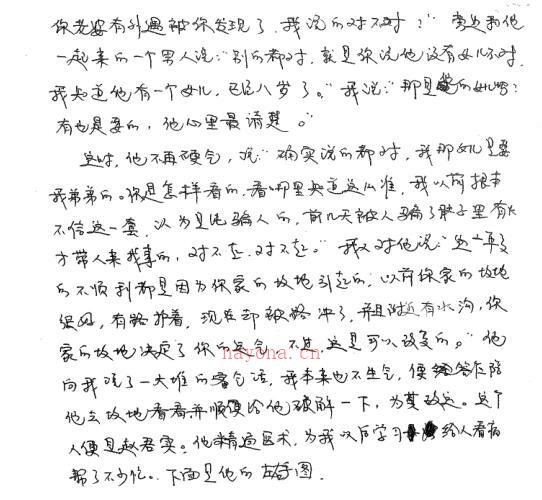 你老婆有外遇被你发现了，我说的对不对？”旁边和他
一起来的一个男人说：“别的都对，就是你说他没有女儿不对，
我知道他有一个女儿，已经八岁了。”我说：“那是他的女儿吗？
有也是要的，他心里最清楚。”
这时，他不再硬气，说：“确实说的都对，我那女儿是要
我弟弟的。你是怎样看的，看哪里知道这么准，我以前根本
不信这一套，认为是骗人的，前几天被人骗了肚子里有火
才带人来找事的，对不起，对不起。”我又对他说：“这十年
的不顺利都是因为你家的坟地引起的，以前你家的坟地
很好，有路抱着，现在却被路冲了，并且附近有水沟，你
家的坟地决定了你的运气，不过，这是可以改变的。”他
向我说了一大堆的客气话，我本来也不生气，便答应陪
他去坟地看看并顺便给他破解一下，为其改运。这个
人便是赵君实。他精通医术，为我以后学习给人看病
帮了不少忙。下面是他的左手图。
nayona.cn